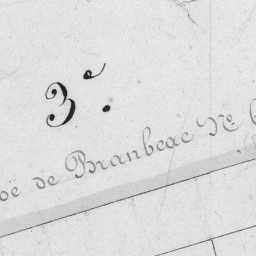 3e.
de Branbeac No